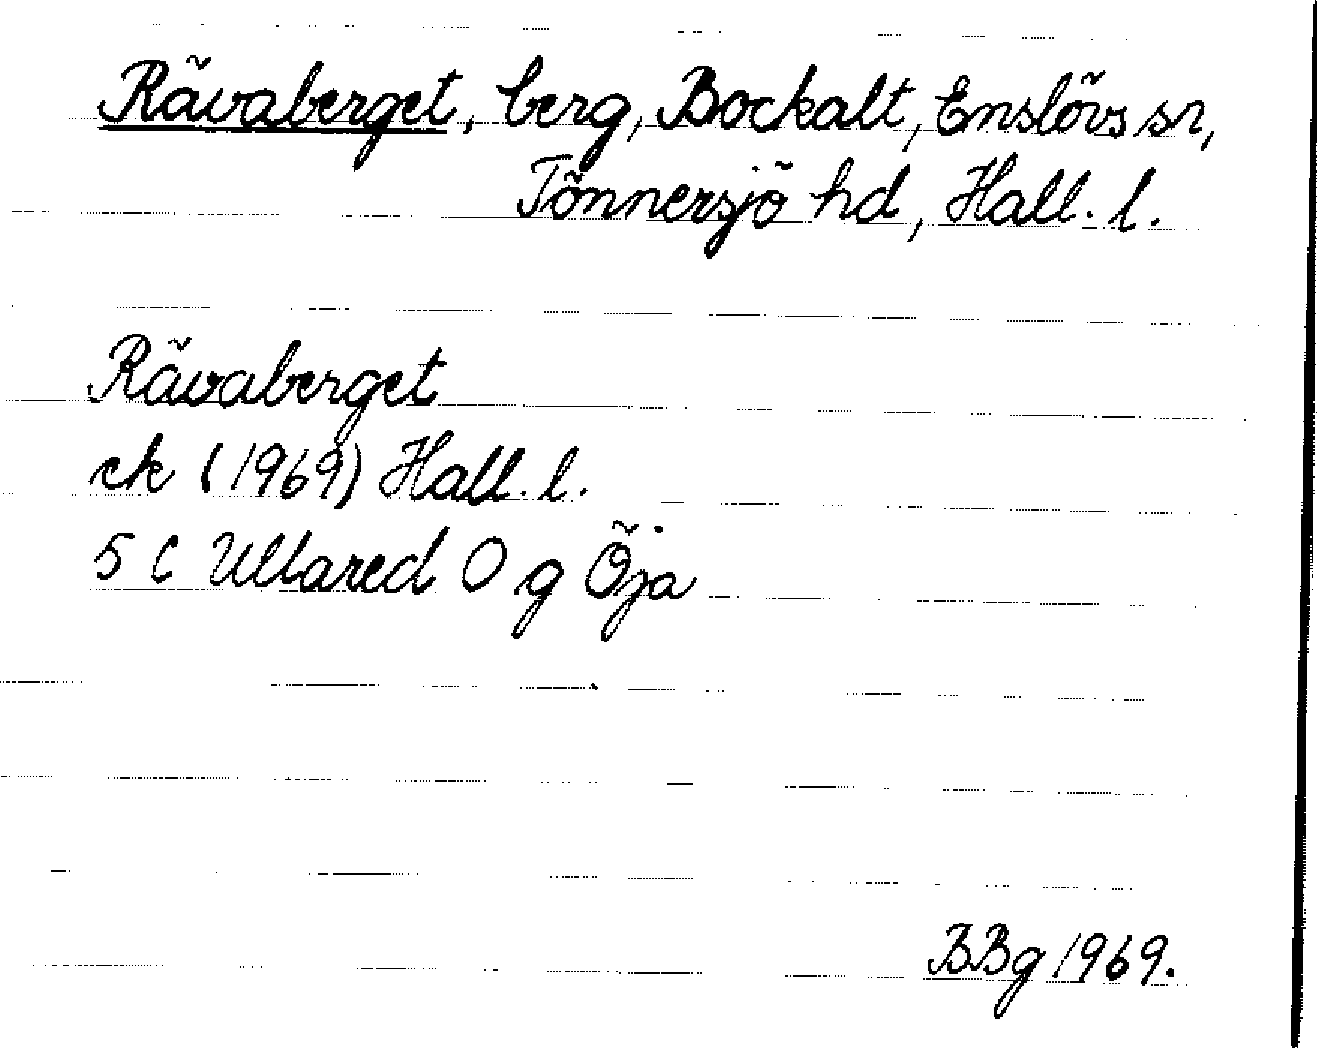 Rävaberget, berg, Bockalt, Enslövs sn,
Tönnersjö hd, Hall. l.
Rävaberget
ek (1969) Hall. l.
5 C Ullared O g Öja
BBg 1969.